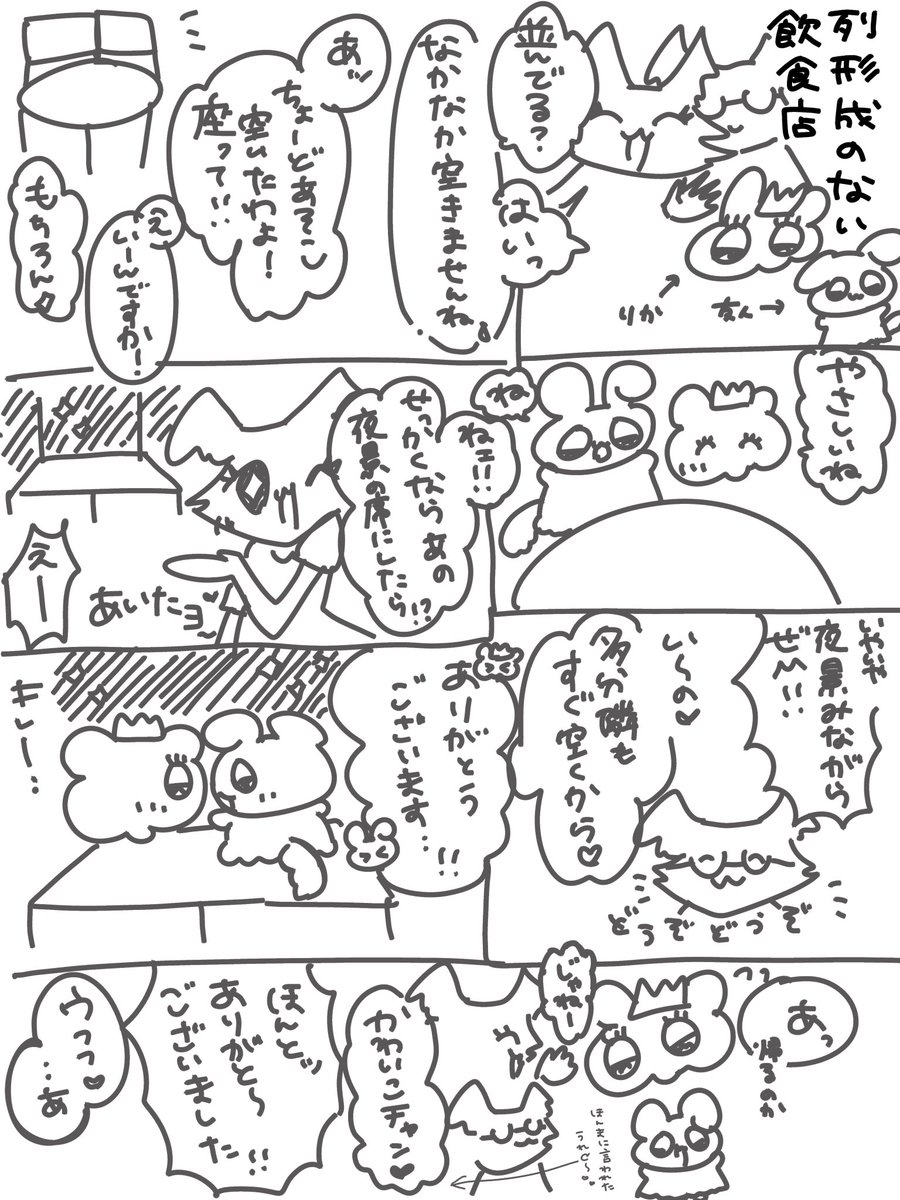 列形成のない
飲食店
並んでる?
はいっ
りか
友人
なかなか空きませんね
あッ
ちょーどあそこ
空いたわよー!
座ってい!!
え
いーんですかー!
もちろん
やさしいね
ね
ねェ!!
せっかくなら あの
夜景の席にしたら!?
あいたヨ〜
えー
いやいや
夜景みながら
ぜひ!!
い〜の♡
多分隣も
すぐ空くから♡
どうぞどうぞ
ありがとう
ございます..!!
キレー..
あっ
帰るのか
じゃねー
かわいこチャン♡
ほんきに言われた
うれし〜♡
ほんとッ
ありがと〜
ございました!!
ウフフ♡
..あ